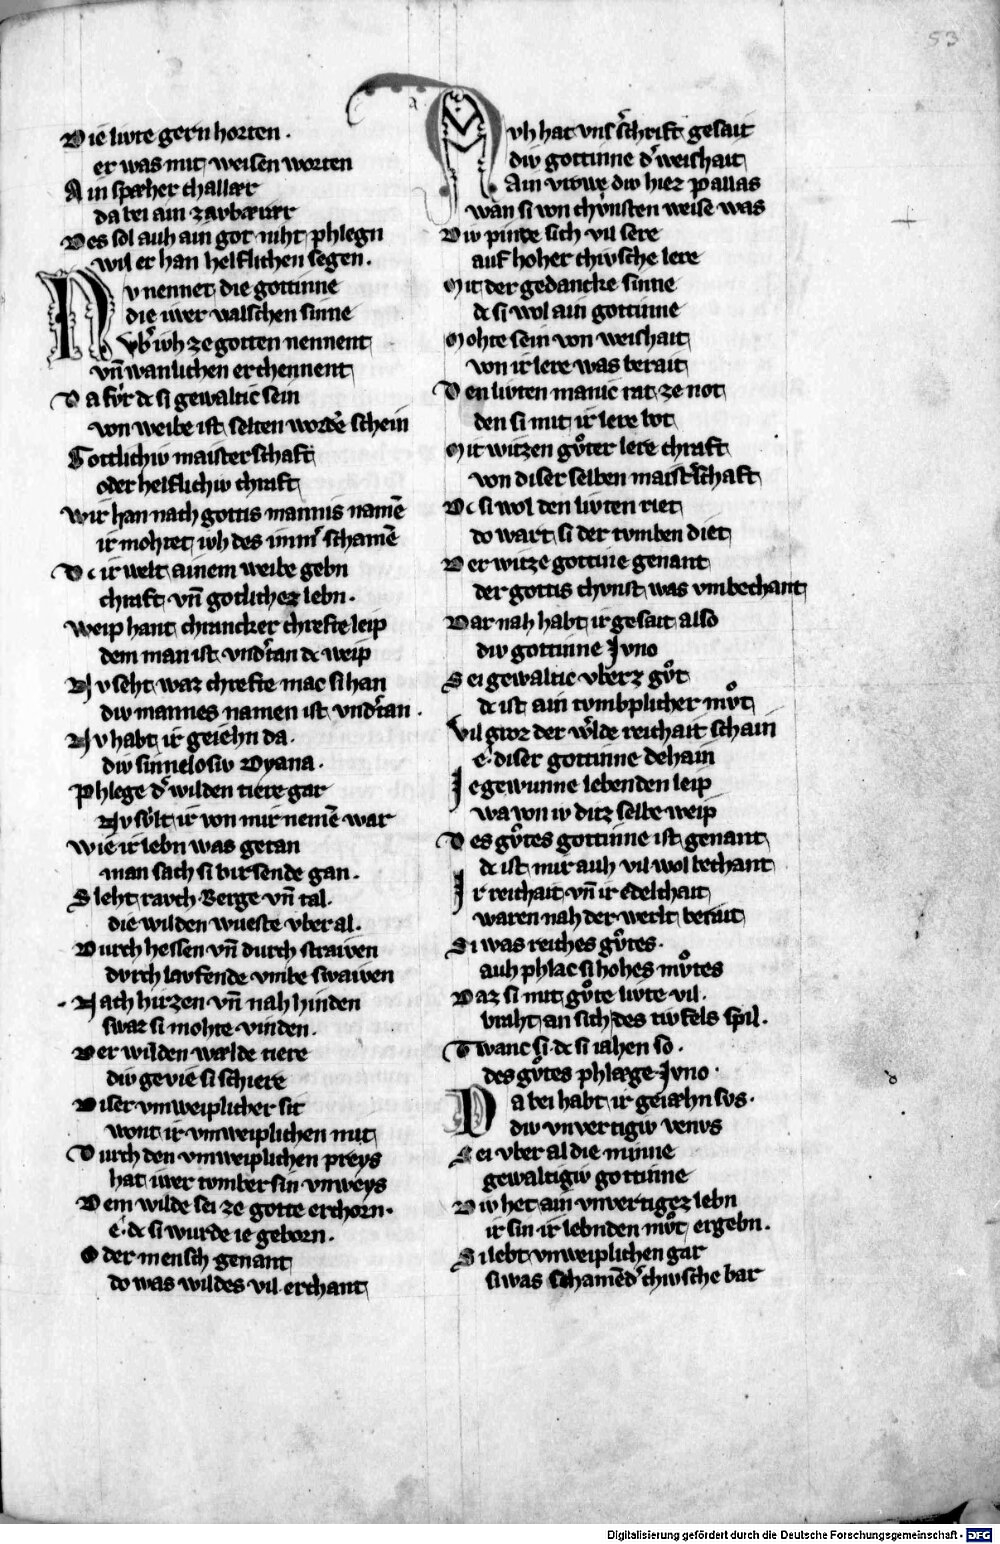 53
Die livte gern horten .
er was mit weisen worten
Ain spæher challær
da bei ain zavbærær
Des sol auh ain got niht phlegn
wil er han helflichen segen .
Nv nennet die gottinne
die iwer valschen sinne
Vb͛ iwh ze gotten nennent
vn̄ wanlichen erchennent
Da fvr dc si gewaltic sein
von weibe ist selten word͛ schein
Gottlichiv maisterschaft
oder helflichiv chraft
Wir han nach gottis mannis namē
ir mohtet iwh des imm͛ schamē
Dc ir welt ainem weibe gebn
chraft vn̄ gotlichez lebn .
Weip hant chrancker chrefte leip
dem man ist vnd͛tan dc weip
Nv seht waz chrefte mac si han
div mannes namen ist vnd͛tan .
Nv habt ir geiehn da .
div sinnelosiv Dyana .
Phlege d͛ wilden tiere gar
Nv svlt ir von mir nemē war
Wie ir lebn was getan
man sach si birsende gan .
Sleht ravch Berge vn̄ tal .
die wilden wueste vber al .
Durch hessen vn̄ durch straiven
dvrch lavfende vmbe swaiven
Nach hirzen vn̄ nah hinden
swaz si mohte vinden .
Der wilden wælde tiere
div gevie si schiere
Diser vnweiplicher sit
wont ir vnweiplichen mit
Durch den vnweiplichen preys
hat iwer tomber sin vnweys
Dem wilde sei ze gotte erchorn .
e . dc si wurde ie geborn .
Oder mensch genant
do was wildes vil erchant
Avh hat vns sc͛hrift gesait
div gottinne d͛ weishait
Ain vrowe div hiez Pallas
wan si von chvnsten weise was
Div pinde sich vil sere
auf hoher chivsche lere
Mit der gedancke sinne
dc si wol ain gottinne
Mohte sein von weishait
von ir lere was berait
Den livten manic rat ze not
den si mit ir lere bot
Mit witzen gůter lere chraft
von diser selben maist͛schaft
Dc si wol den livten riet
do wart si der tvmben diet
Der witze gottine genant
der gottis chvnst was vmbechant
Dar nah habt ir gesait also
div gottinne Jvno
Sei gewaltic vberz gůt
dc ist ain tvmplicher můt
Vil groz der w͛lde reichait schain
e . diser gottinne dehain
Je gewunne lebenden leip
wa von iv ditz selbe weip
Des gůtes gottinne ist genant
dc ist mir auh vil wol bechant
Ir reichait vn̄ ir Edelchait
waren nah der werlt berait
Si was reiches gůtes .
auh phlac si hohes můtes
Daz si mit gůte livte vil .
braht an sich des tivfels spil .
Twanc si dc si iahen so .
des gůtes phlæge Jvno .
Da bei habt ir geiæhn svs .
div vnvertigiv venvs
Sei vber al die minne
gewaltigiv gottinne
Div het ain vnvertigez lebn
ir sin ir lebnden můt ergebn .
Si lebt vnweiplichen gar
si was schamēd͛ chivsche bar
Digitalisierung gefördert durch die Deutsche Forschungsgemeinschaft - DFG